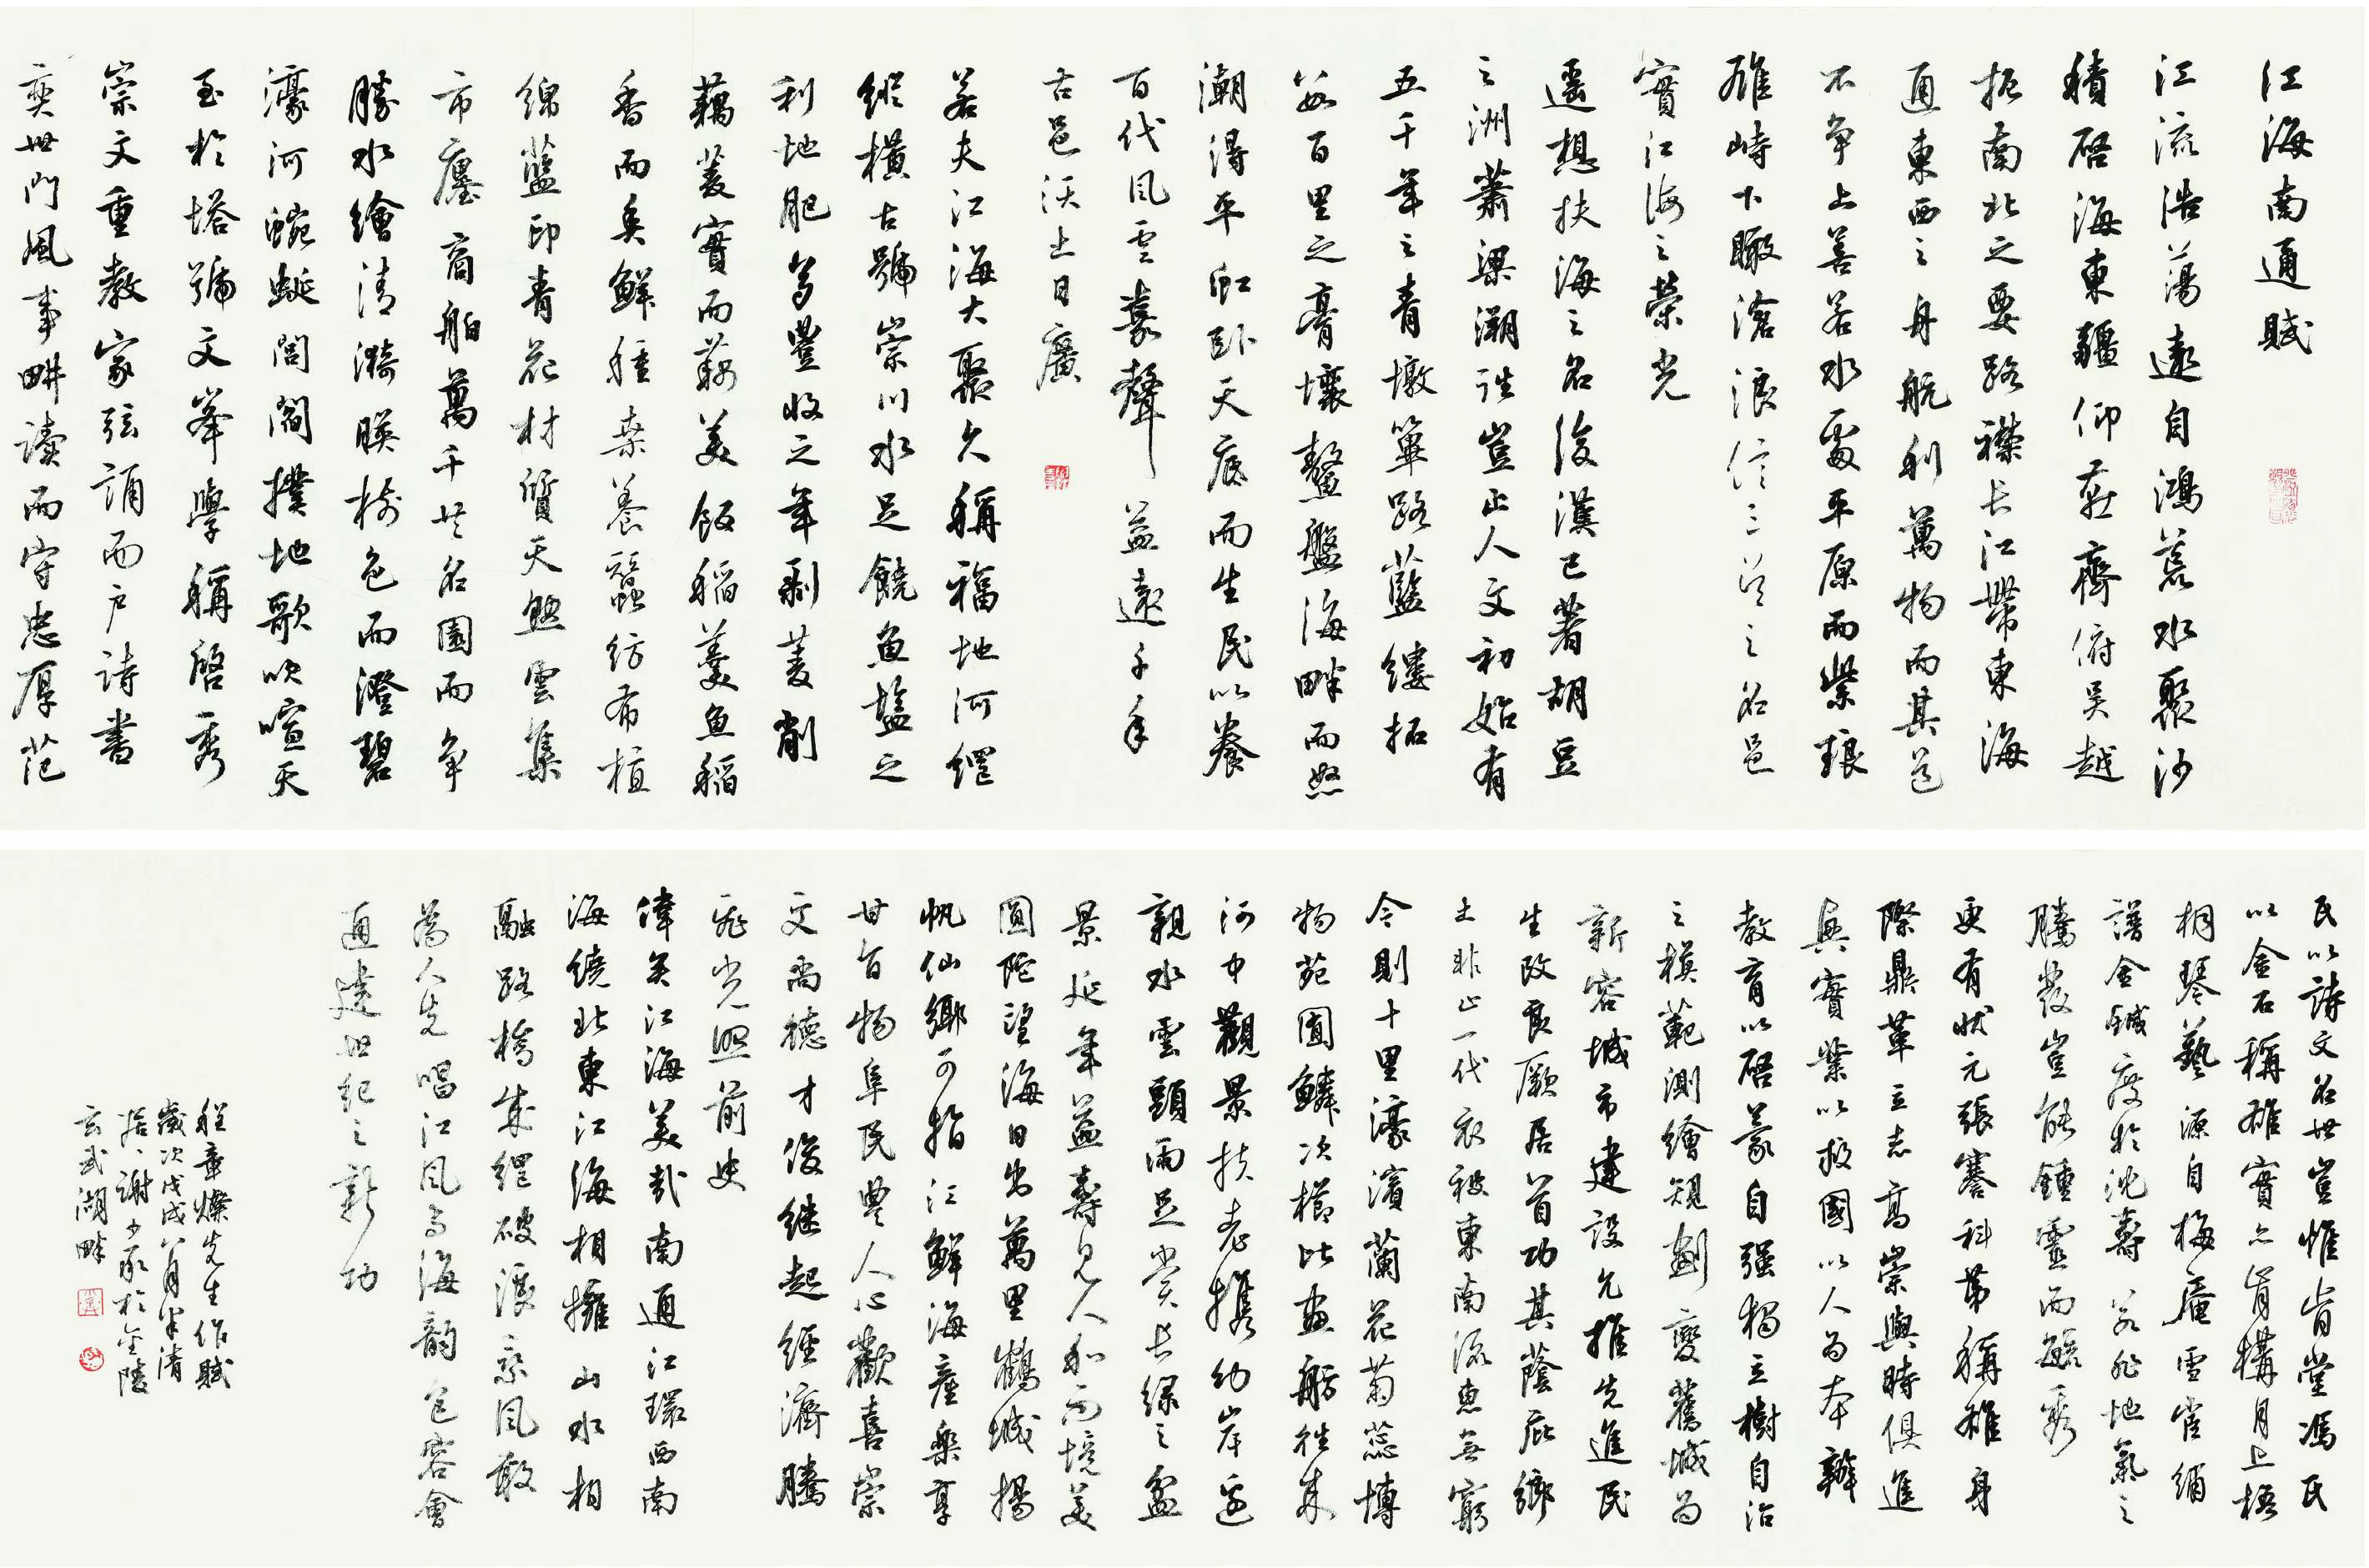 江海南通賦
江流浩蕩遠自鴻荒水聚沙
積啓海東疆仰蘇齊俯吳越
扼南北之要路襟長江帶東海
通東西之舟航利萬物而其志
不爭上善若水處平原而紫琅
雄峙下瞰滄浪信江海之名邑
實江海之榮光
遥想扶海之名後漢已著胡豆
之洲蕭梁溯詳豈止人文初始有
五千年之青墩篳路藍縷拓
數百里之膏壤鰲盤海畔而怒
潮得平虹卧天底而生民以養
百代風雲嘉聲益遠千年
古邑沃土日廣
若夫江海大聚久稱福地河網
縱横古號崇川水足饒魚鹽之
利地肥多豐收之年剥菱削
藕菱實而藕美飯稻羹魚稻
香而魚鮮種桑養蠶紡布植
綿藍印青花材質天然雲集
市廛商舶萬千廿名園而争
勝水繪清漪映梅色而澄碧
濠河蜿蜒閭閻撲地歌吹喧天
至於塔號文峯學稱啓秀
崇文重教家弦誦而户詩書
奕世門風事畊讀而守忠厚范
民以詩文名世豈惟肯堂馮氏
以金石稱雄實亦肯構月上梧
桐琴藝源自梅庵雪宧繡
譜金鍼度於沈壽若非地氣之
騰發豈能鍾靈而毓秀
更有狀元張謇科第稱雄身
際鼎革立志高崇與時俱進
興實業以救國以人為本辦
教育以啓蒙自强獨立樹自治
之模範測繪規劃變舊城為
新容城市建設允推先進民
生改良厥居首功其蔭庇鄉
土非止一代衣被東南流惠無窮
今則十里濠濱蘭花菊蕊博
物苑囿鱗次櫛比畫舫往來
河中觀景扶老攜幼岸邊
親水雲頭雨足賞長緑之盆
景延年益壽見人和而境美
圓陀望海日出萬里鶴城揚
帆仙鄉可指江鮮海産樂享
廿旨物阜民豐人心歡喜崇
文尚德才俊繼起經濟騰
飛光照前史
偉矣江海美哉南通江環西南
海繞北東江海相擁山水相
融路橋成網破浪乘風敢
為人先唱江風與海韵包容會
通建世紀之新功
程章燦先生作賦
歲次戊戌八月半清
居謝少承於金陵
玄武湖畔